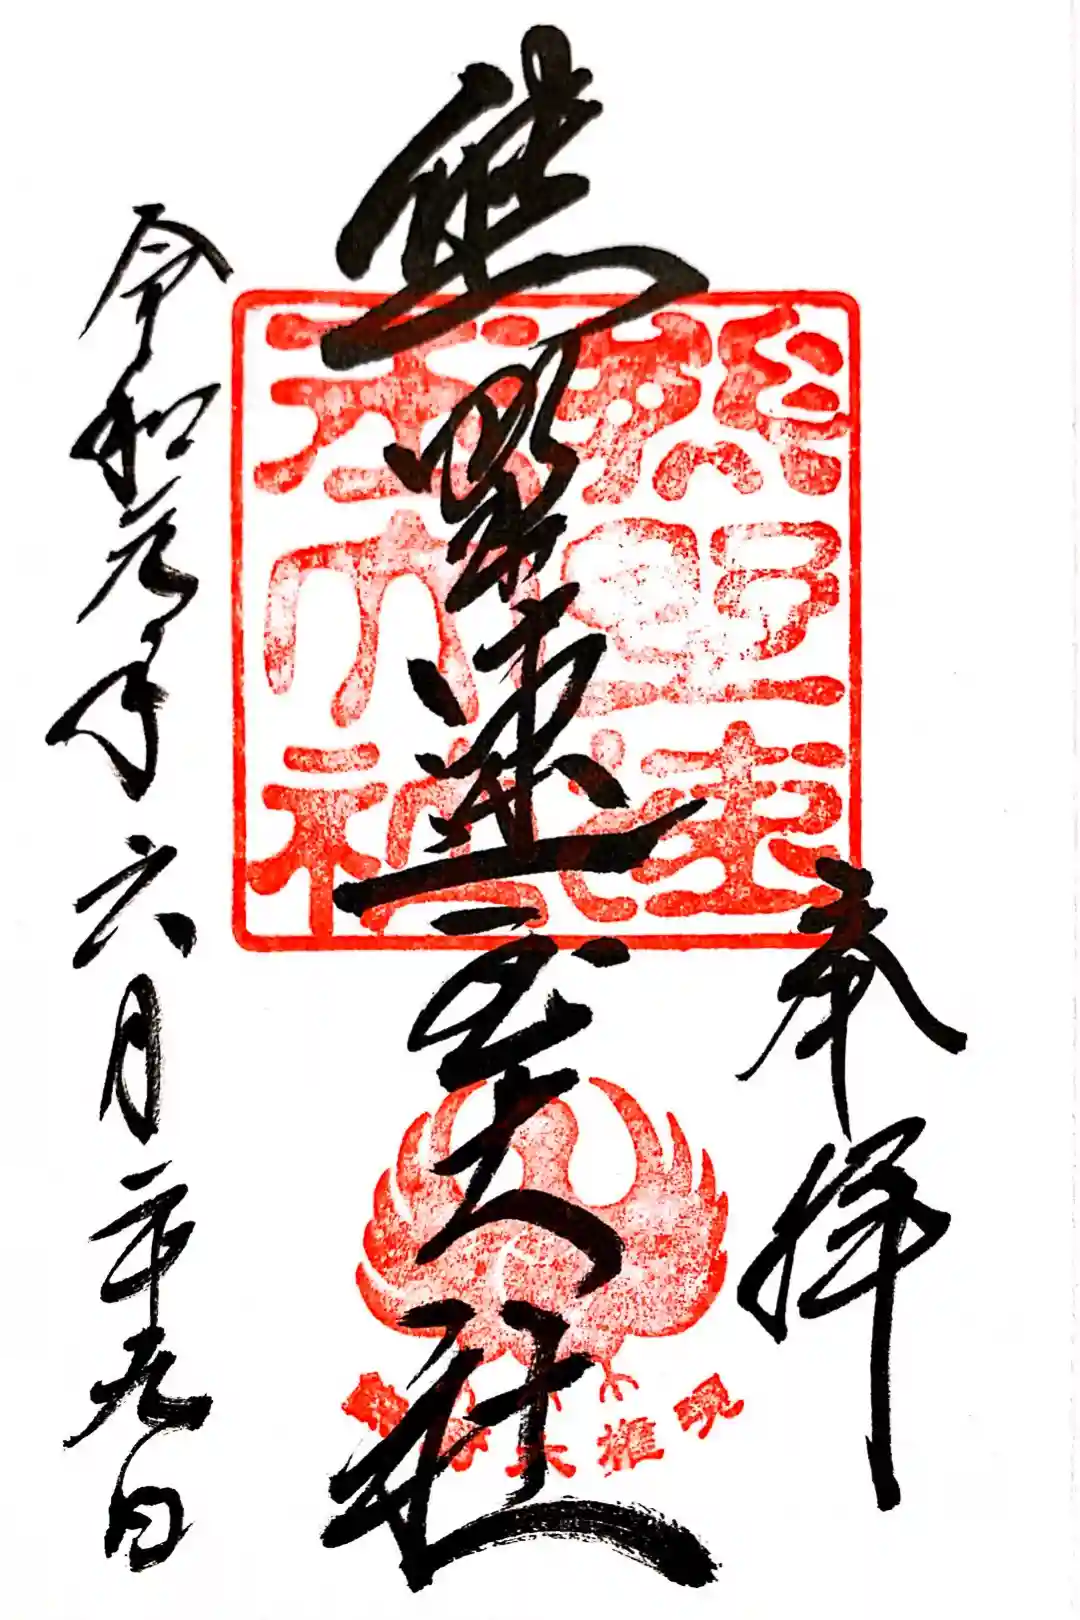 奉拝
熊野速玉大社
令和元年六月二十九日
熊野速
熊野大權現